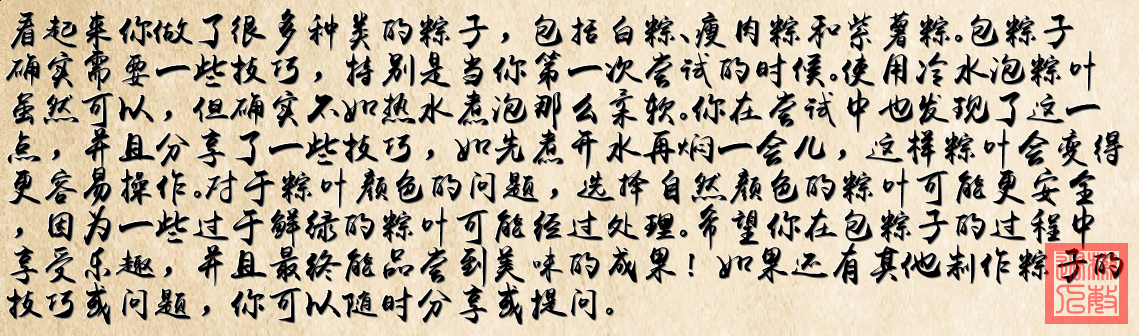 看起来你做了很多种类的粽子，包括白粽、瘦肉粽和紫薯粽。包粽子
确实需要一些技巧，特别是当你第一次尝试的时候。使用冷水泡粽叶
虽然可以，但确实不如热水煮泡那么柔软。你在尝试中也发现了这一
点，并且分享了一些技巧，如先煮开水再焖一会儿，这样粽叶会变得
更容易操作。对于粽叶颜色的问题，选择自然颜色的粽叶可能更安全
，因为一些过于鲜绿的粽叶可能经过处理。希望你在包粽子的过程中
享受乐趣，并且最终能品尝到美味的成果！如果还有其他制作粽子的
技巧或问题，你可以随时分享或提问。